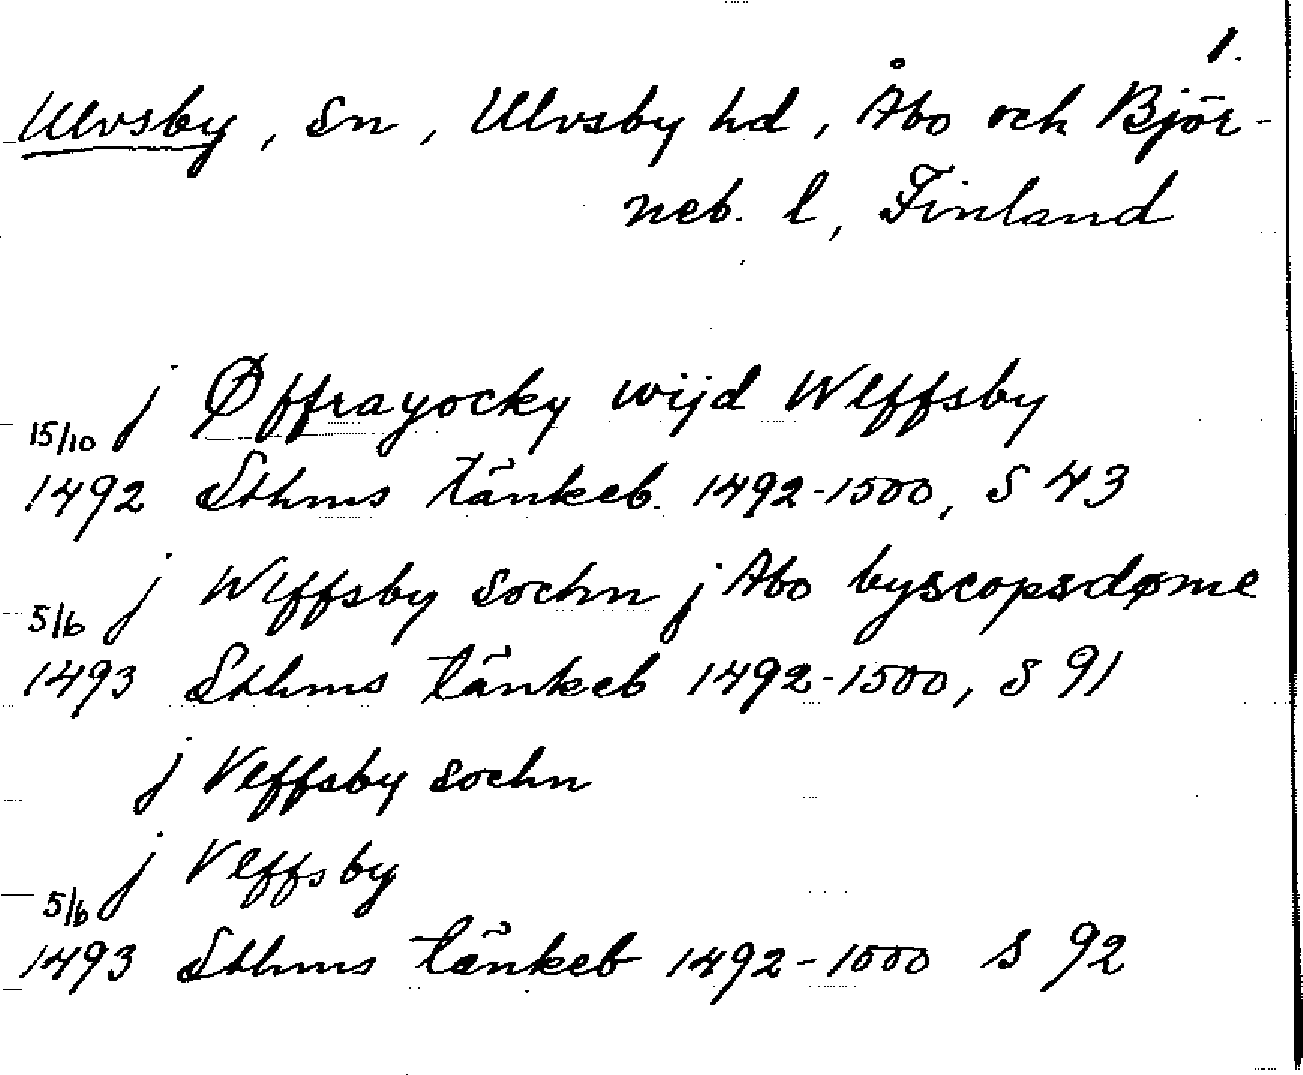 1.
Ulvsby, Sn, Ulvsby hd, Åbo och Björ-
neb. l, Finland
j Øffrayocky wijd Wlffsby
15/10
1492 Sthms tänkeb. 1492-1500, S 43
j Wlffsby sochn j Abo byscopsdøme
5/6
1493 Sthms tänkeb 1492-1500, S 91
j Vlffsby sochn
j Vlffsby
5/6
1493 Sthms tänkeb 1492-1500 S 92